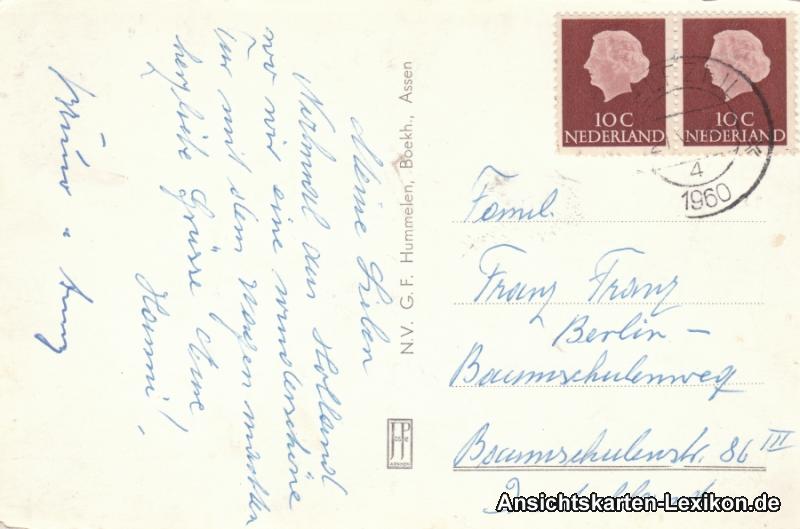 Meine Lieben
Nochmal aus Holland
wo wir eine wunderschöne
Tour mit dem Wagen machten
herzliche Grüsse Eure
Hanni!
Bruno u.
N.V. G. F. Hummelen, Boekh., Assen
JosPé
ARNHEM
10 C
NEDERLAND
10 C
NEDERLAND
4
1960
Famil.
Franz Franz
Berlin –
Baumschulenweg
Baumschulenstr. 86 III
Ansichtskarten-Lexikon.de